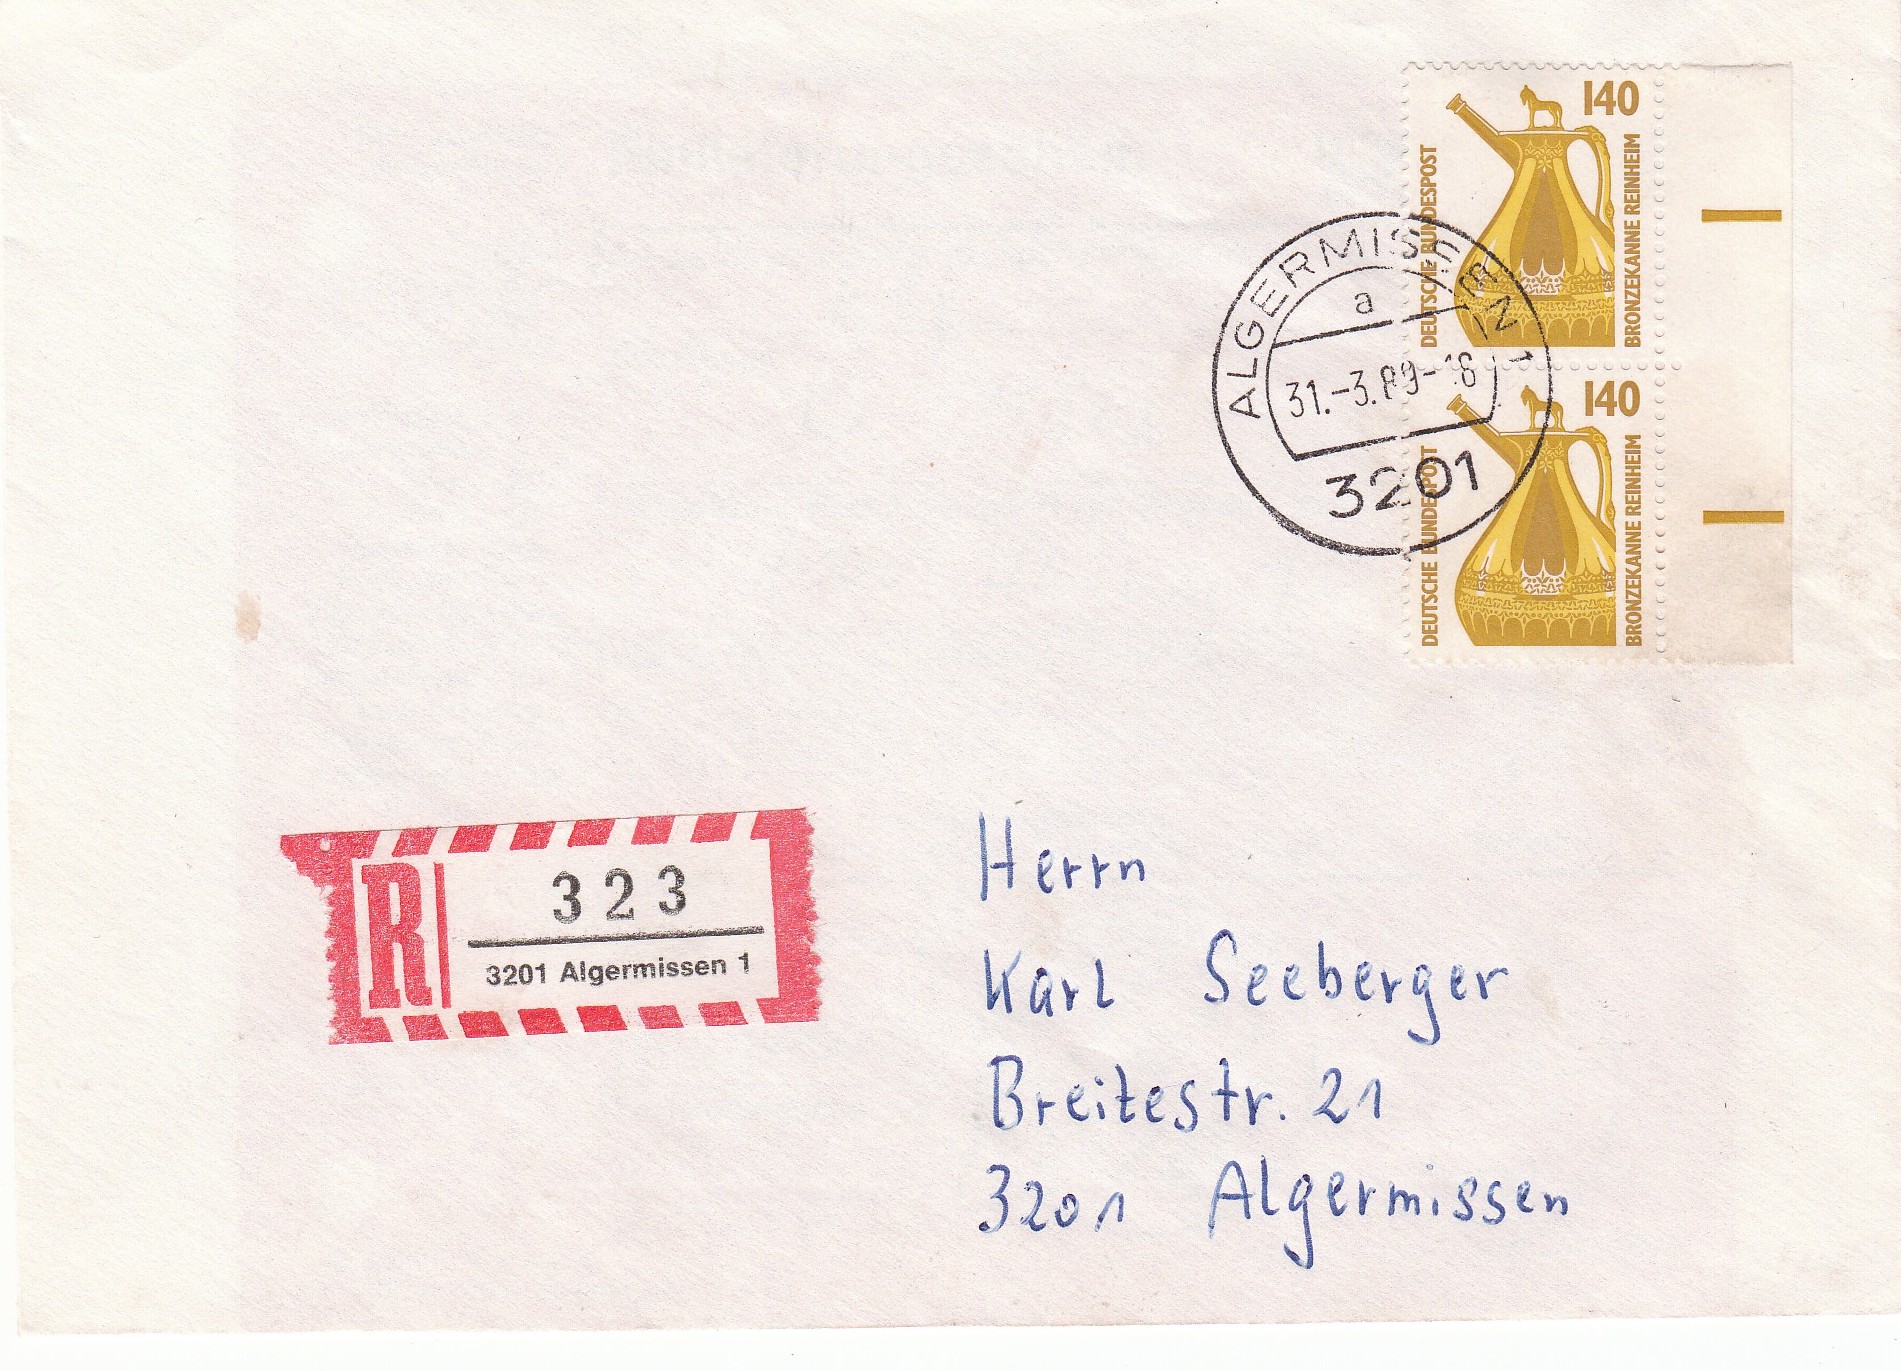 140
DEUTSCHE BUNDESPOST
BRONZEKANNE REINHEIM
140
DEUTSCHE BUNDESPOST
BRONZEKANNE REINHEIM
ALGERMISSEN 1
a
31.-3.89-16
3201
R
323
3201 Algermissen 1
Herrn
Karl Seeberger
Breitestr. 21
3201 Algermissen